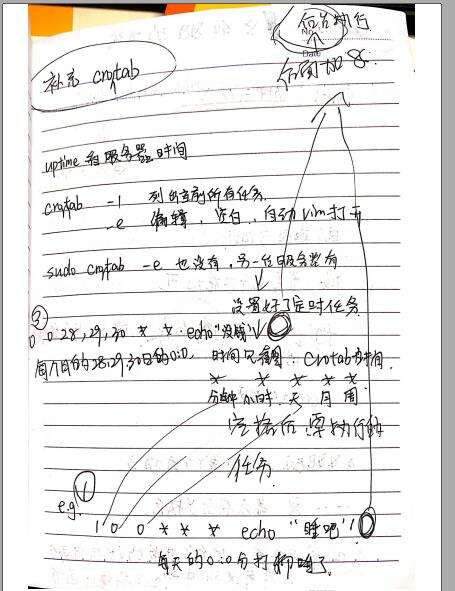 后台执行
No.
Date
后面加 &
补充 crotab
uptime 看服务器时间
crotab -l 列出当前所有任务
-e 编辑，空白，自动vim打开
sudo crotab -e 也没有，另一台服务器有
设置好了定时任务
②
0 0 28,29,30 * * echo "没钱"
每个月的28,29,30日的0:0.
时间 crotab 时间.
* * * * *
分钟 小时 天 月 周
空格后，要执行的
任务
e.g. ①
10 0 * * * echo "睡吧"
每天的0:10分打印睡了